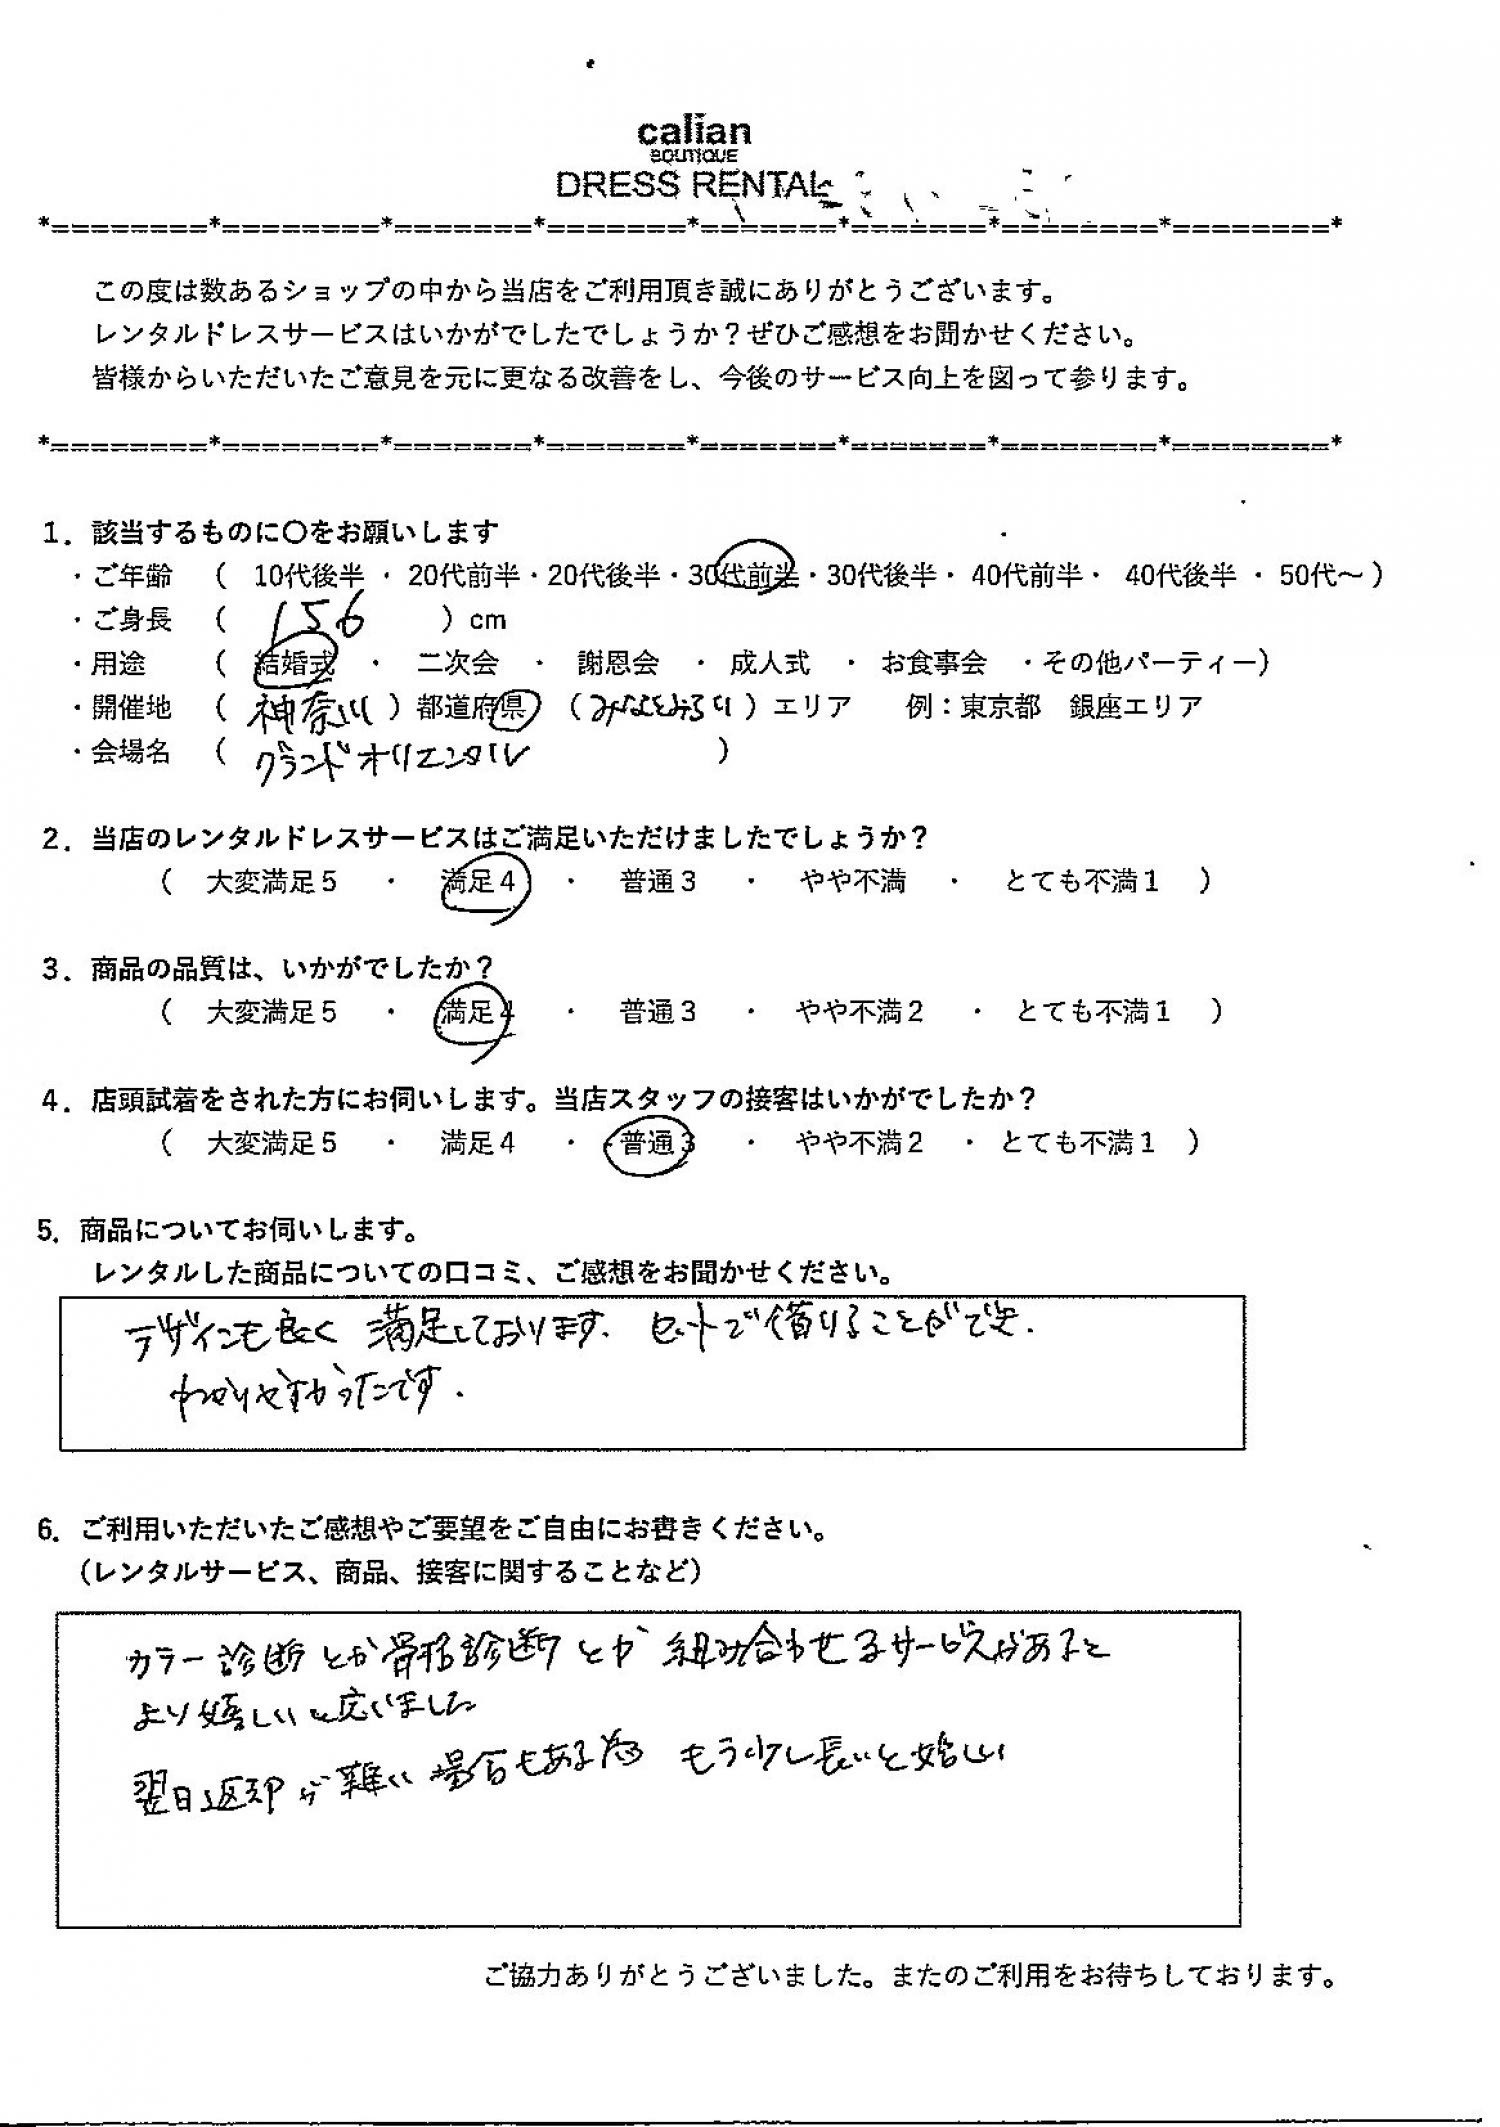 calian
BOUTIQUE
DRESS RENTAL
*========*========*=======*=======*=======*=======*========*========*
この度は数あるショップの中から当店をご利用頂き誠にありがとうございます。
レンタルドレスサービスはいかがでしたでしょうか？ぜひご感想をお聞かせください。
皆様からいただいたご意見を元に更なる改善をし、今後のサービス向上を図って参ります。
*========*========*=======*=======*=======*=======*========*========*
1．該当するものに〇をお願いします
・ご年齢 （ 10代後半 ・ 20代前半・20代後半・30代前半・30代後半・ 40代前半・ 40代後半 ・ 50代～ ）
・ご身長 （ 156 ）cm
・用途 （ 結婚式 ・ 二次会 ・ 謝恩会 ・ 成人式 ・ お食事会 ・その他パーティー）
・開催地 （ 神奈川 ）都道府県 （ みなとみらい ）エリア 例：東京都 銀座エリア
・会場名 （ グランドオリエンタル ）
2．当店のレンタルドレスサービスはご満足いただけましたでしょうか？
（ 大変満足５ ・ 満足４ ・ 普通３ ・ やや不満 ・ とても不満１ ）
3．商品の品質は、いかがでしたか？
（ 大変満足５ ・ 満足４ ・ 普通３ ・ やや不満２ ・ とても不満１ ）
4．店頭試着をされた方にお伺いします。当店スタッフの接客はいかがでしたか？
（ 大変満足５ ・ 満足４ ・ 普通３ ・ やや不満２ ・ とても不満１ ）
5．商品についてお伺いします。
レンタルした商品についての口コミ、ご感想をお聞かせください。
デザインも良く 満足しております. セットで借りることができ.
わかりやすかったです.
6．ご利用いただいたご感想やご要望をご自由にお書きください。
（レンタルサービス、商品、接客に関することなど）
カラー診断とか骨格診断とか 組み合わせるサービスがあると
より嬉しいと思いました
翌日返却が難しい場合もある為 もう少し長いと嬉しい
ご協力ありがとうございました。またのご利用をお待ちしております。